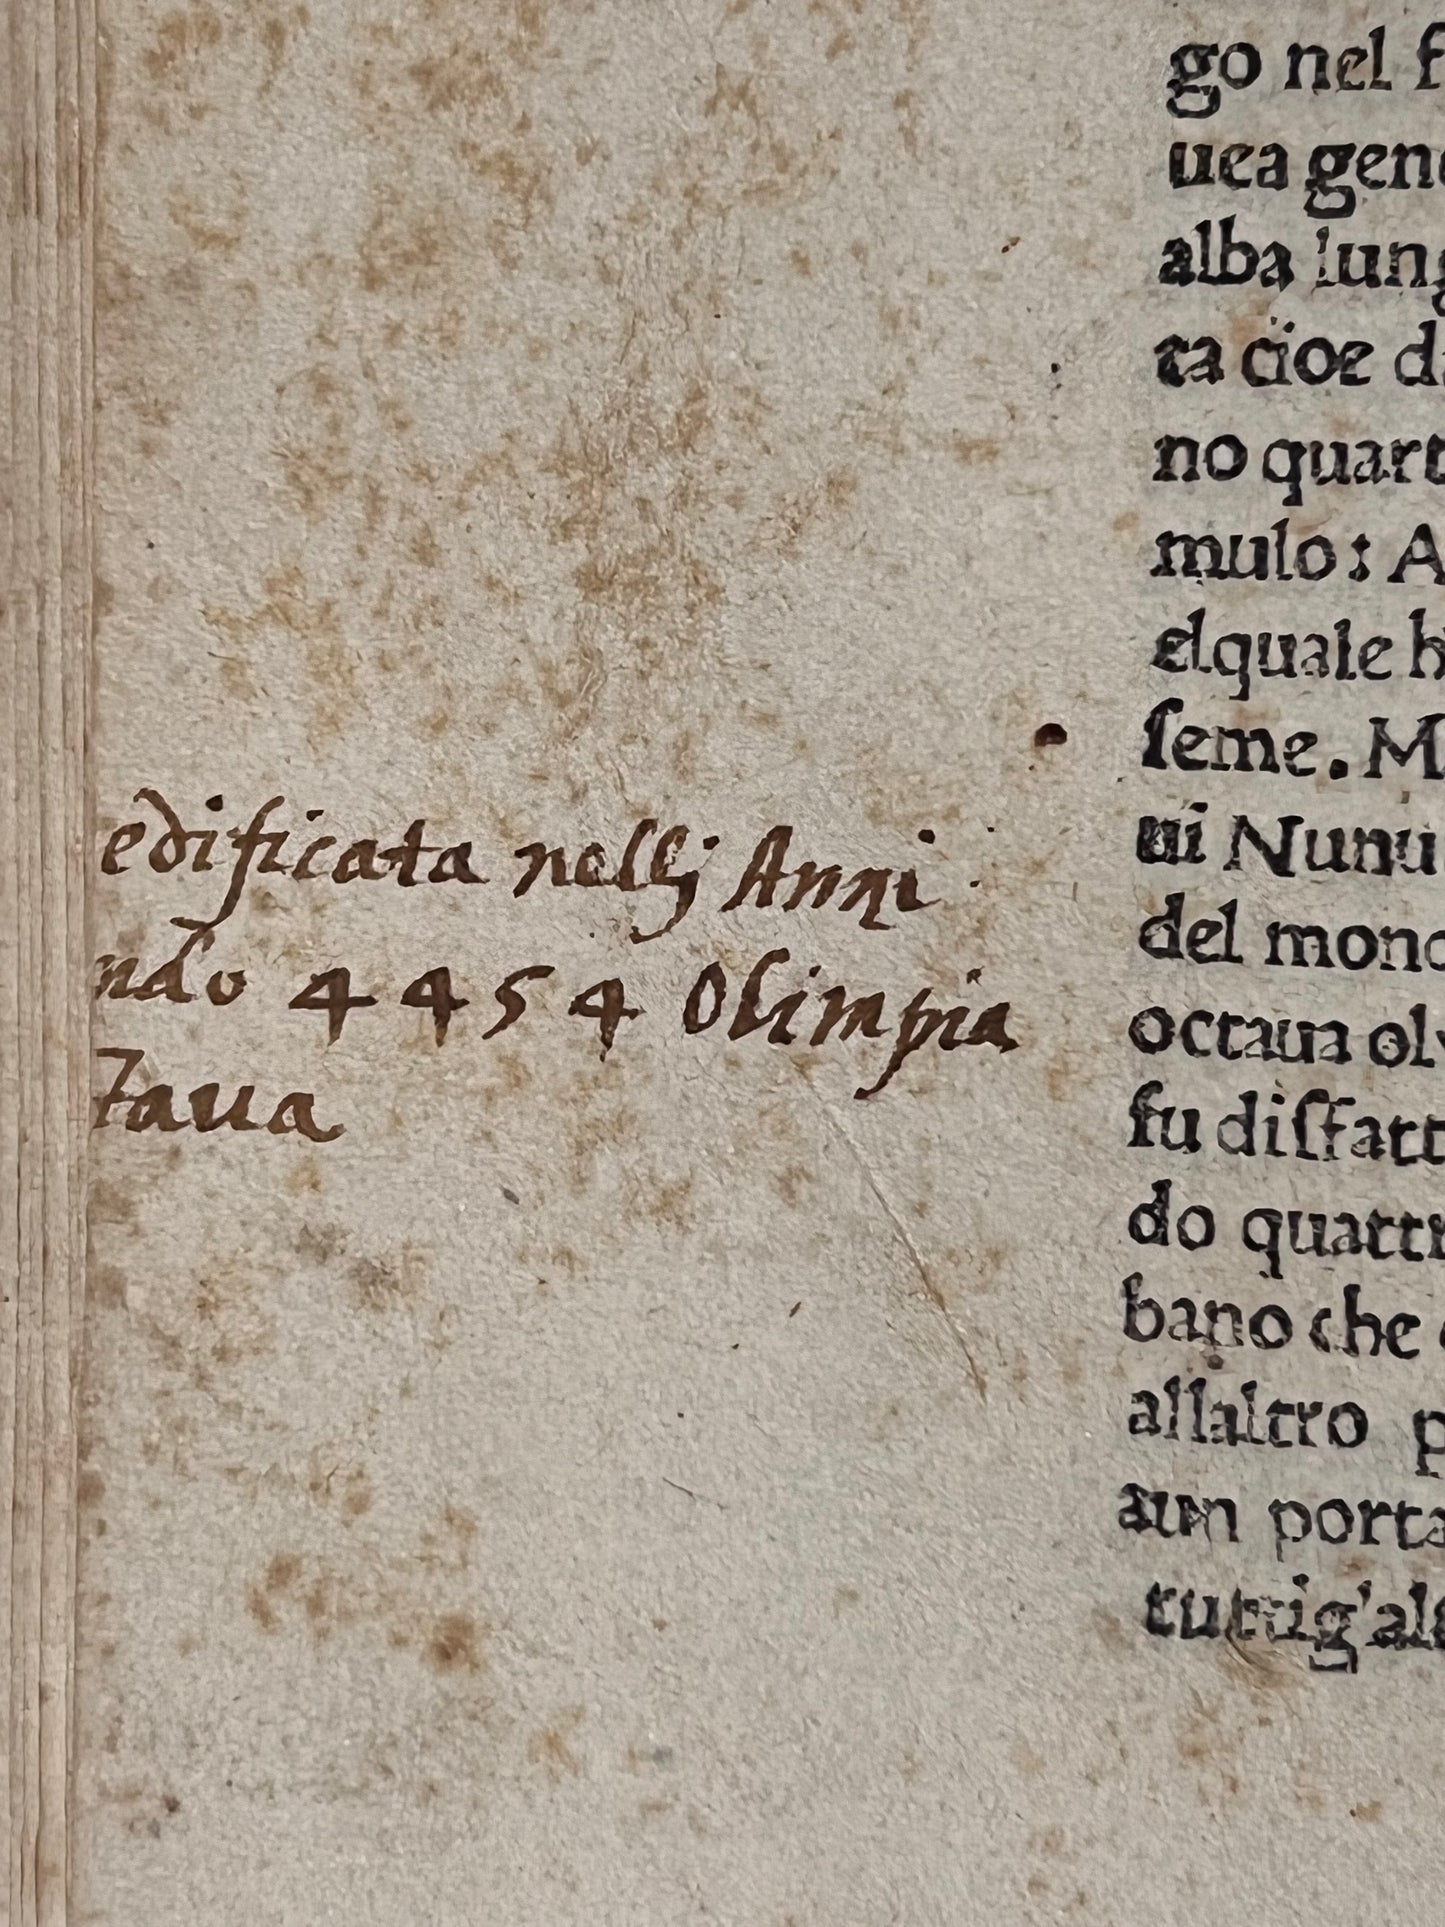 edificata nellj Anni
ndo 4454 Olimpia
taua
go nel f
uea gene
alba lung
ta cioe da
no quart
mulo: A
elquale h
ſeme. M
ui Nunu
del mond
octaua oly
fu diſfatt
do quattr
bano che
allaltro p
aun porta
tuttig'alt